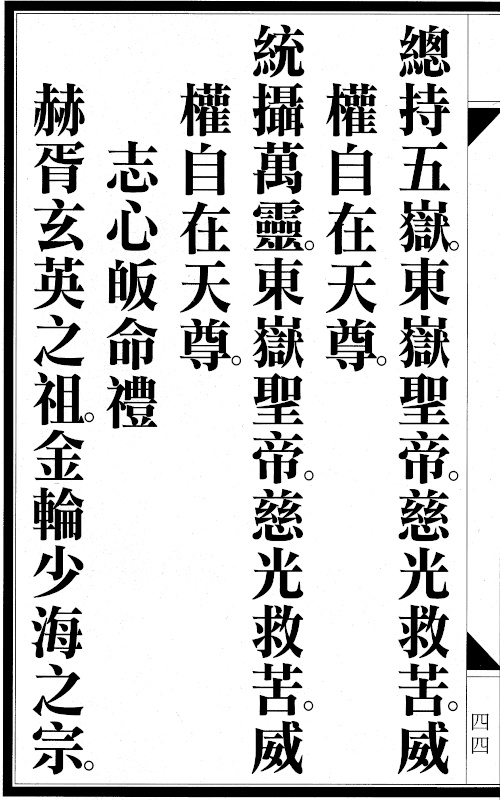 總持五嶽。東嶽聖帝。慈光救苦。威
權自在天尊。
統攝萬靈。東嶽聖帝。慈光救苦。威
權自在天尊。
志心皈命禮
赫胥玄英之祖。金輪少海之宗。
四四